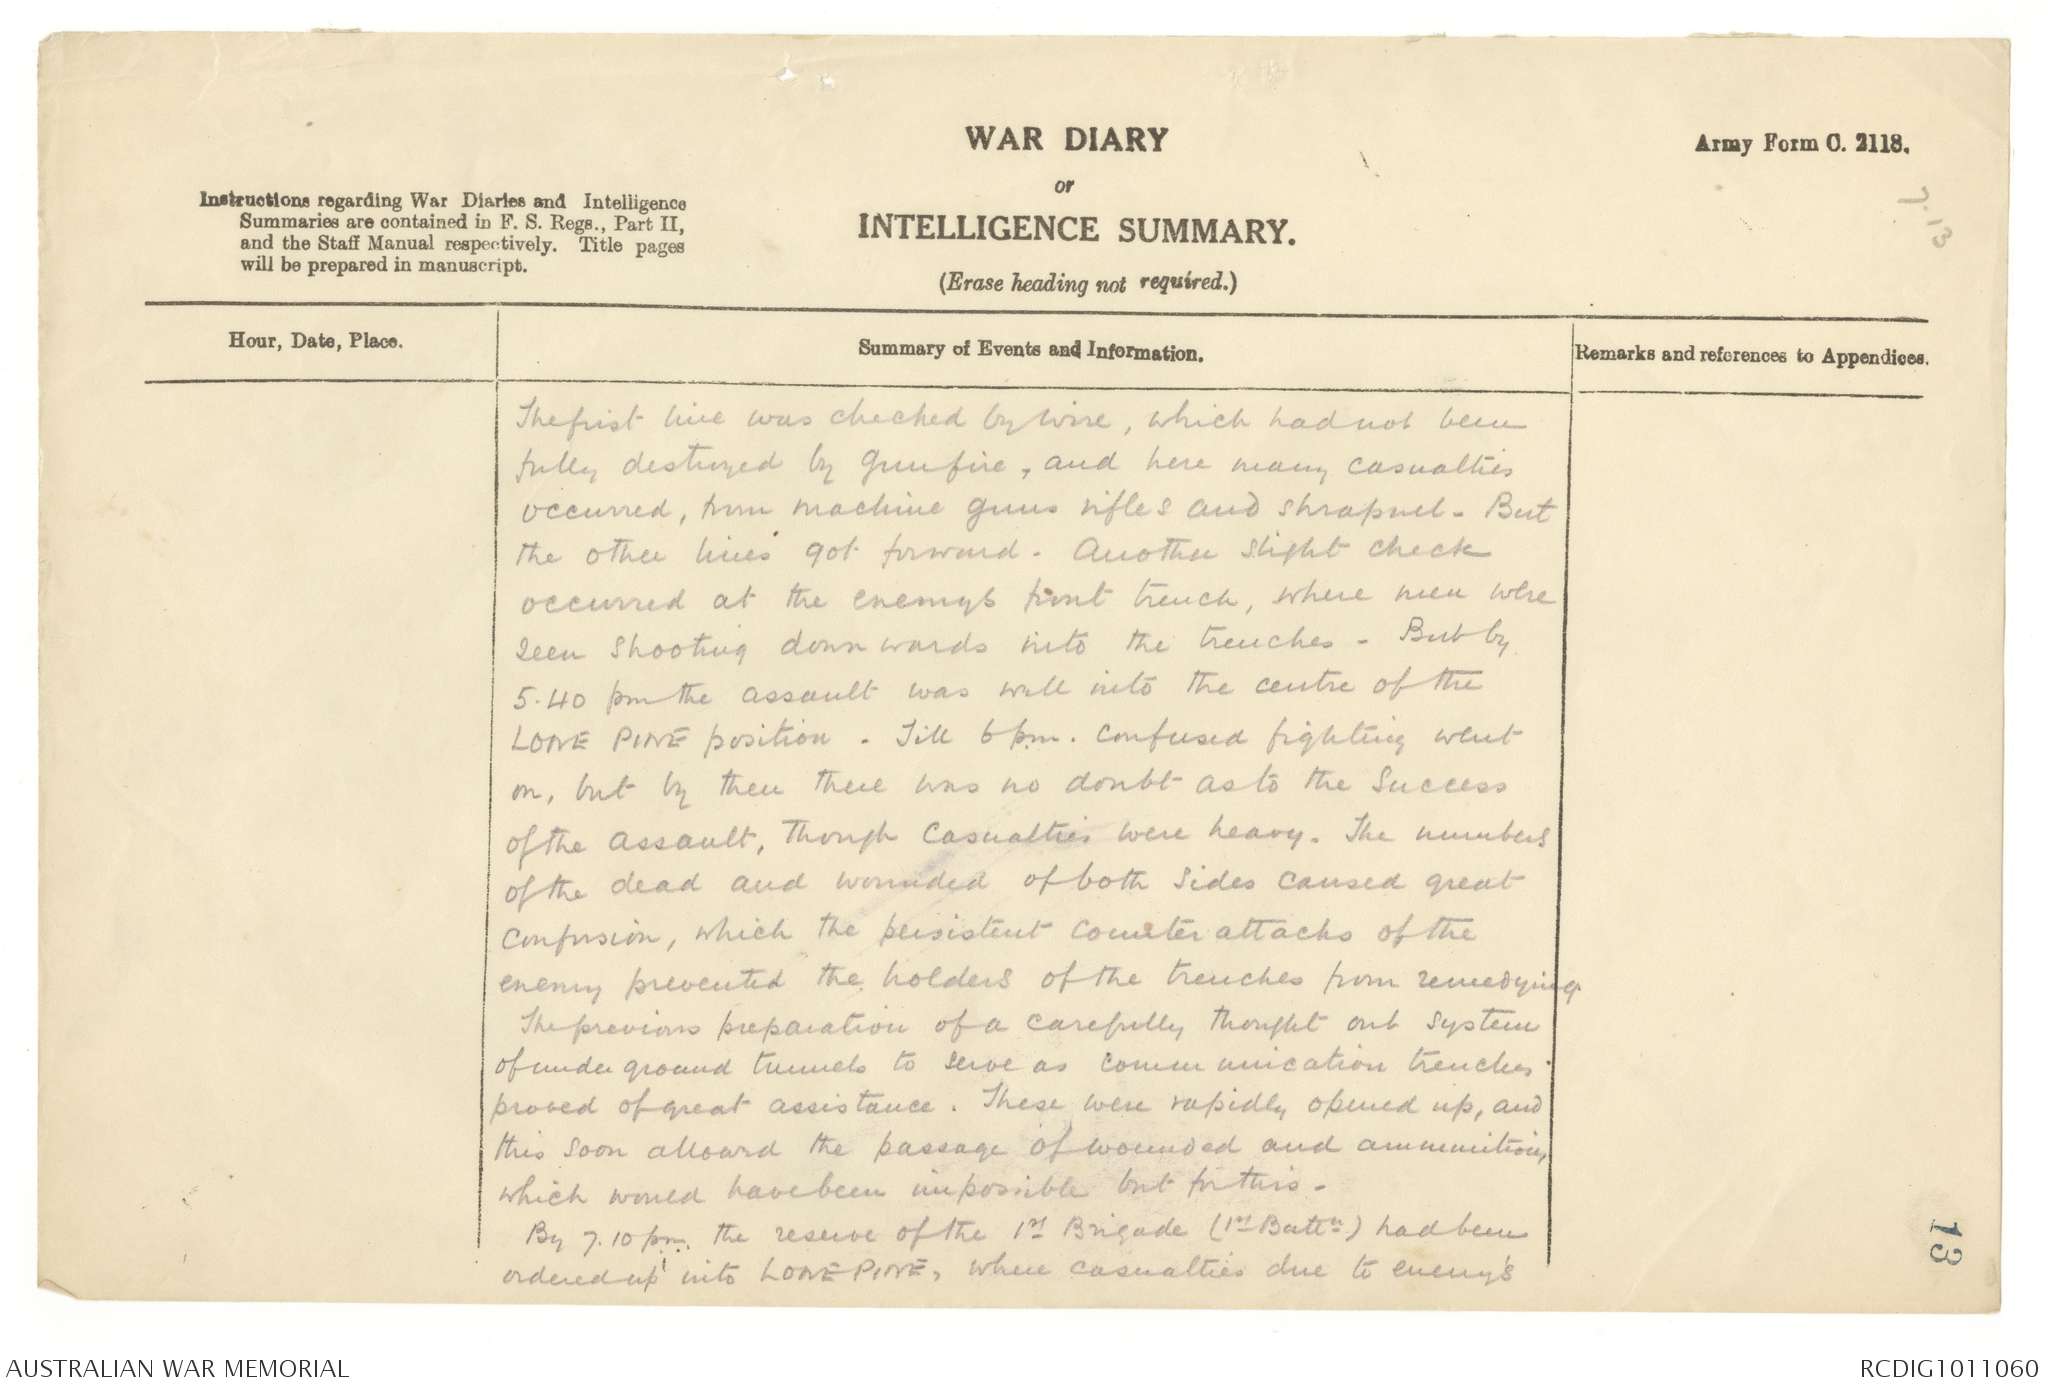 WAR DIARY
or
INTELLIGENCE SUMMARY.
(Erase heading not required.)
Army Form C. 2118.
7.13
Instructions regarding War Diaries and Intelligence
Summaries are contained in F. S. Regs., Part II,
and the Staff Manual respectively. Title pages
will be prepared in manuscript.
Hour, Date, Place.
Summary of Events and Information.
Remarks and references to Appendices.
The first line was checked by wire, which had not been
fully destroyed by gunfire, and here many casualties
occurred, from machine guns rifles and shrapnel - But
the other lines got forward - Another slight check
occurred at the enemys front trench, where men were
seen shooting downwards into the trenches - But by
5.40 pm the assault was well into the centre of the
LONE PINE position - Till 6 pm. confused fighting went
on, but by then there was no doubt as to the success
of the assault, though casualties were heavy. The numbers
of the dead and wounded of both sides caused great
confusion, which the persistent counter attacks of the
enemy prevented the holders of the trenches from remedying.
The previous preparation of a carefully thought out system
of underground tunnels to serve as communication trenches
proved of great assistance. These were rapidly opened up, and
this soon allowed the passage of wounded and ammunition,
which would have been impossible but for this -
By 7.10 pm. the reserve of the 1st Brigade (1st Battn) had been
ordered up into LONE PINE, where casualties due to enemy's
13
AUSTRALIAN WAR MEMORIAL
RCDIG1011060